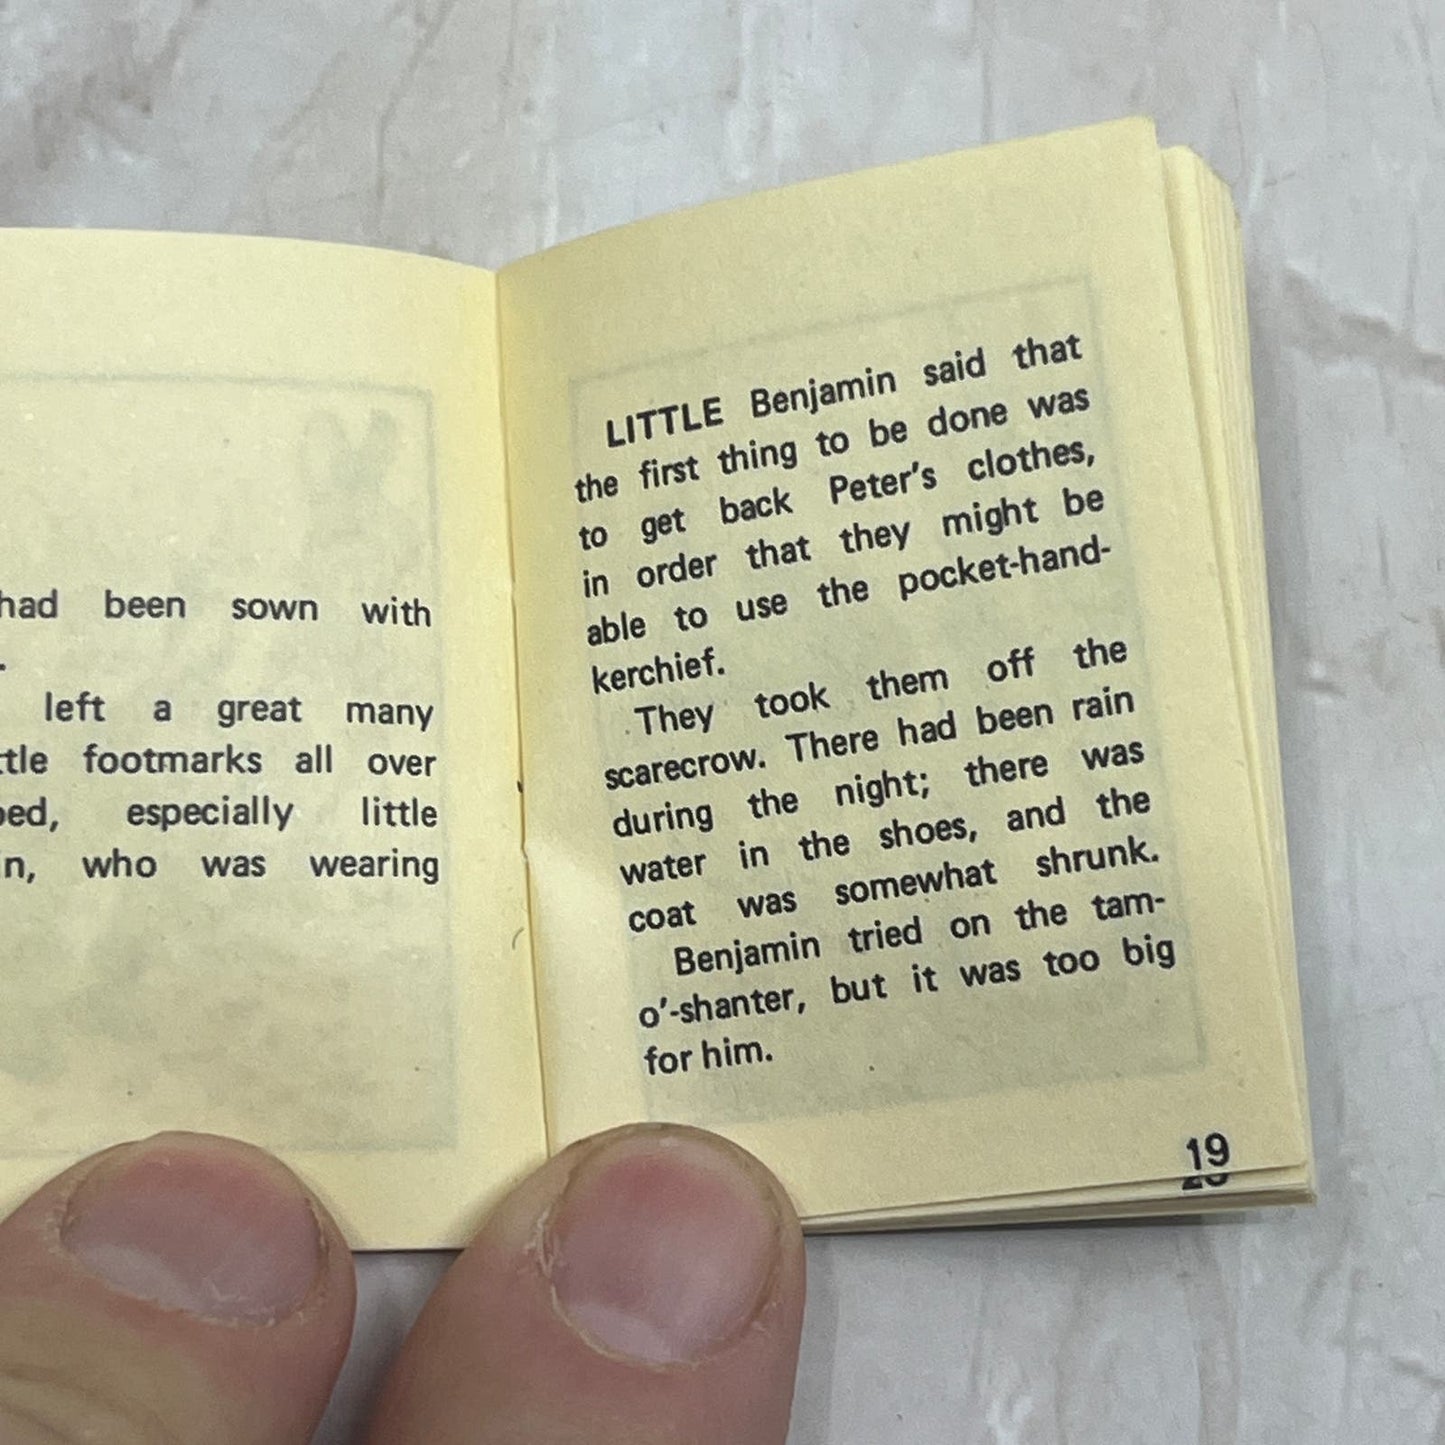 had been sown with
.
left a great many
footmarks all over
especially little
who was wearing
LITTLE Benjamin said that
the first thing to be done was
to get back Peter's clothes,
in order that they might be
able to use the pocket-hand-
kerchief.
They took them off the
scarecrow. There had been rain
during the night; there was
water in the shoes, and the
coat was somewhat shrunk.
Benjamin tried on the tam-
o'-shanter, but it was too big
for him.
19